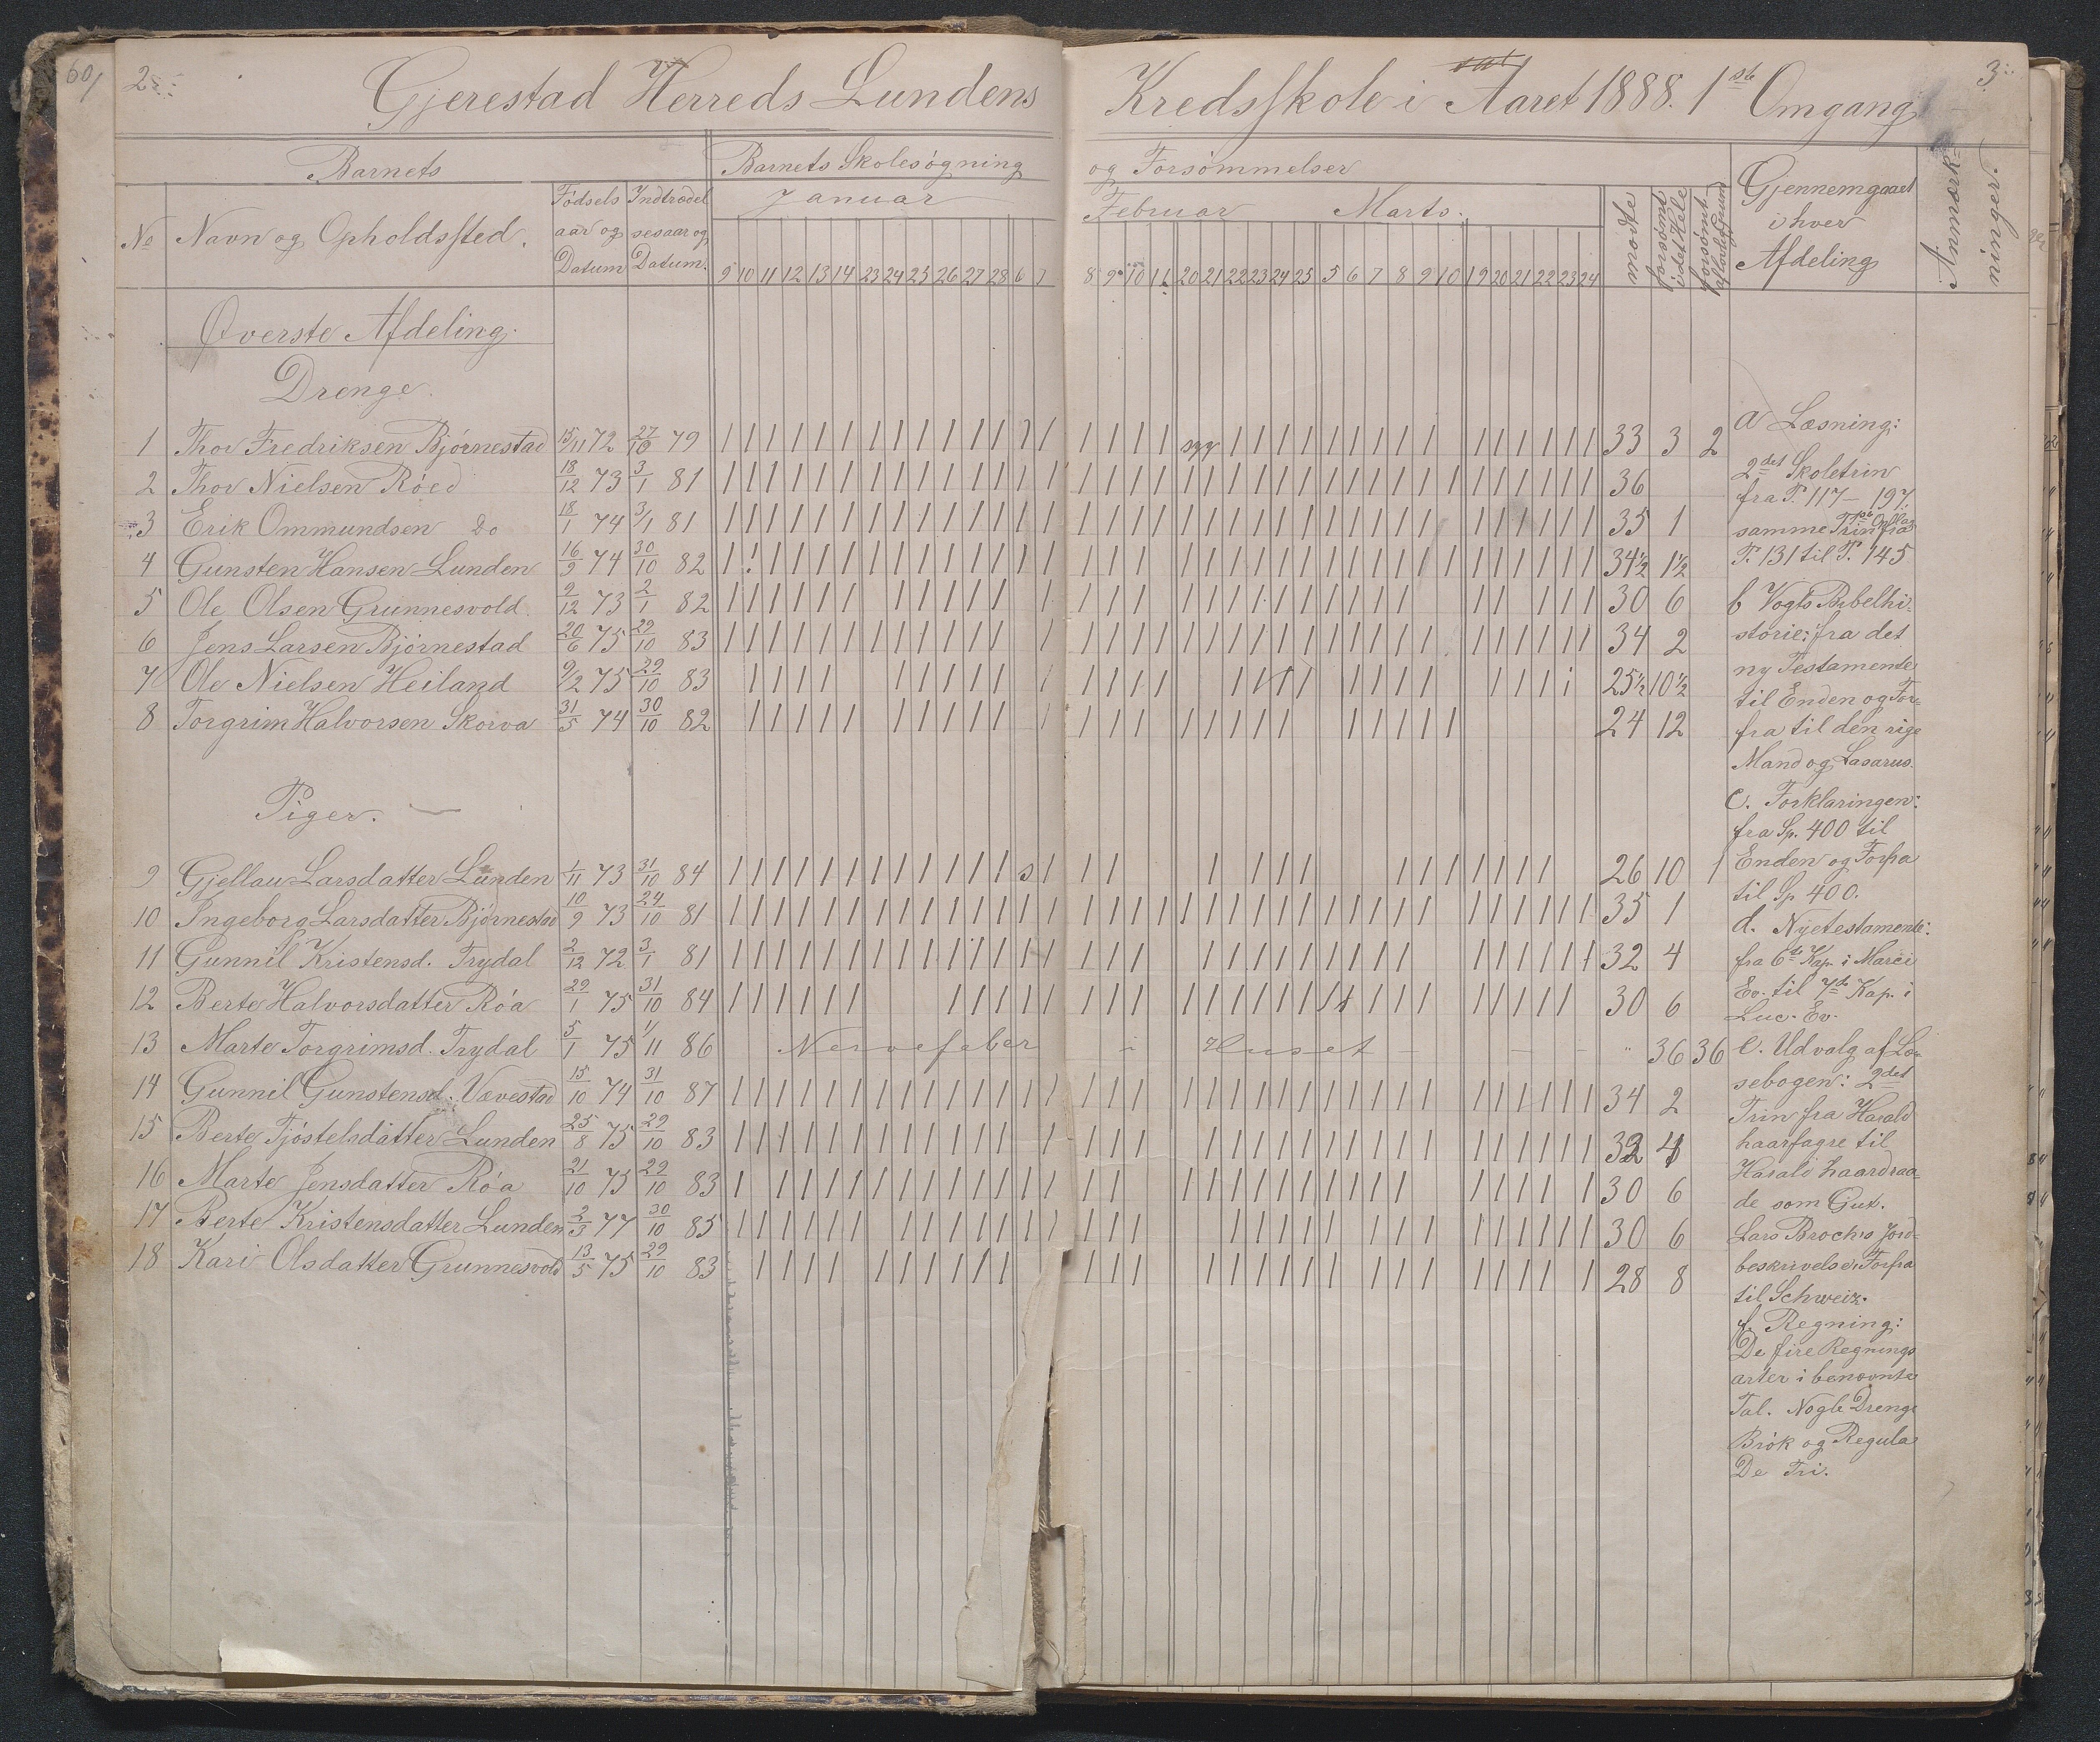 60/
2
Gjerestad Herreds Lundens Kredsskole i Aaret 1888. 1ste Omgang
3
Barnets
Barnets Skolesøgning og Forsømmelser
No Navn og Opholdssted.
Fødsels aar og Datum
Indtrædelsesaar og Datum.
Januar
Februar Marts.
mødte
forsømt i det Hele
forsømt af lovlig Grund
Gjennemgaaet i hver Afdeling
Anmærkninger.
9 10 11 12 13 14 23 24 25 26 27 28 6 7 8 9 10 11 20 21 22 23 24 25 5 6 7 8 9 10 19 20 21 22 23 24
Øverste Afdeling.
Drenge.
1 Thor Fredriksen Bjørnestad 15/11 72 27/10 79 syg 33 3 2
2 Thor Nielsen Röed 18/12 73 3/1 81 36
3 Erik Ommundsen Do 18/1 74 3/1 81 35 1
4 Gunsten Hansen Lunden 16/9 74 30/10 82 34½ 1½
5 Ole Olsen Grunnesvold. 2/12 73 2/1 82 30 6
6 Jens Larsen Bjørnestad 20/6 75 29/10 83 34 2
7 Ole Nielsen Heiland 9/2 75 29/10 83 25½ 10½
8 Torgrim Halvorsen Skorva 31/5 74 30/10 82 24 12
Piger.
9 Gjellau Larsdatter Lunden 1/11 73 31/10 84 s 26 10 1
10 Ingeborg Larsdatter Bjørnestad 10/9 73 24/10 81 35 1
11 Gunnil Kristensd. Trydal 2/12 72 3/1 81 32 4
12 Berte Halvorsdatter Röa 29/1 75 31/10 84 30 6
13 Marte Torgrimsd. Trydal 5/1 75 1/11 86 Nervefeber i Huset - - - " 36 36
14 Gunnil Gunstensd. Vævestad 15/10 74 31/10 87 34 2
15 Berte Tjöstelsdatter Lunden 25/8 75 29/10 83 32 4
16 Marte Jensdatter Röa 21/10 75 29/10 83 30 6
17 Berte Kristensdatter Lunden 2/3 77 30/10 85 30 6
18 Kari Olsdatter Grunnesvold 13/5 75 29/10 83 28 8
a Læsning:
2det Skoletrin
fra P. 117 - 197.
samme Trin 1ste Opflag fra
P. 131 til P. 145
b Vogts Bibelhi-
storie: fra det
ny Testamente
til Enden og For-
fra til den rige
Mand og Lasarus.
c. Forklaringen:
fra Sp. 400 til
Enden og Forfra
til Sp 400.
d. Nyetestamente:
fra 6te Kap. i Marci
Ev. til 7de Kap. i
Luc. Ev.
e. Udvalg af Læ-
sebogen: 2det
Trin fra Harald
haarfagre til
Harald haardraa-
de som Gut.
Lars Brochs Jord-
beskrivelse: Forfra
til Schweiz.
f. Regning:
De fire Regnings
arter i benævnte
Tal. Nogle Drenge
Brök og Regula
De Tri.